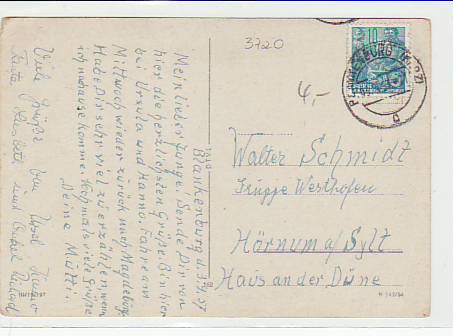 3720
10
BLANKENBURG (HARZ)
4,-
Blankenburg d. 3.7.57
Mein lieber Junge. Sende Dir von
hier die herzlichsten Grüße. Bin hier
bei Ursula und Hanno. Fahre am
Mittwoch wieder zurück nach Magdeburg
Habe Dir sehr viel zu erzählen wenn
ich nachhause komme. Nochmals viele Grüße
Deine Mutti.
Viele Grüße von Ursel, Hanno
Tante Liesbeth und Onkel Richard
Walter Schmidt
Gruppe Westhofen
Hörnum a/Sylt
Haus an der Düne